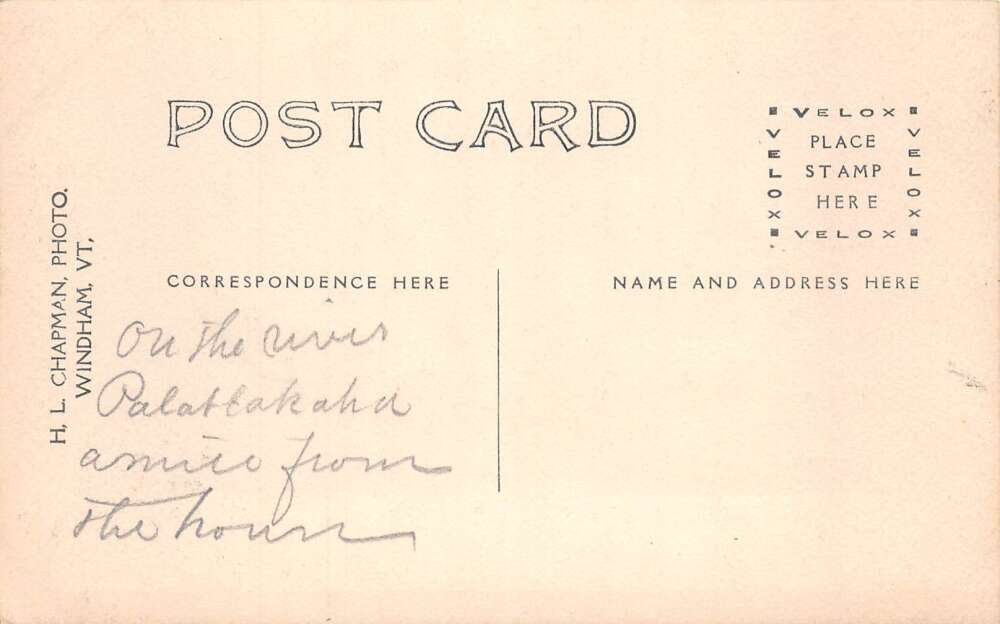 POST CARD
VELOX
VELOX
PLACE
STAMP
HERE
VELOX
VELOX
H. L. CHAPMAN, PHOTO.
WINDHAM, VT,
CORRESPONDENCE HERE
NAME AND ADDRESS HERE
On the river
Palatlakaha
a mile from
the house